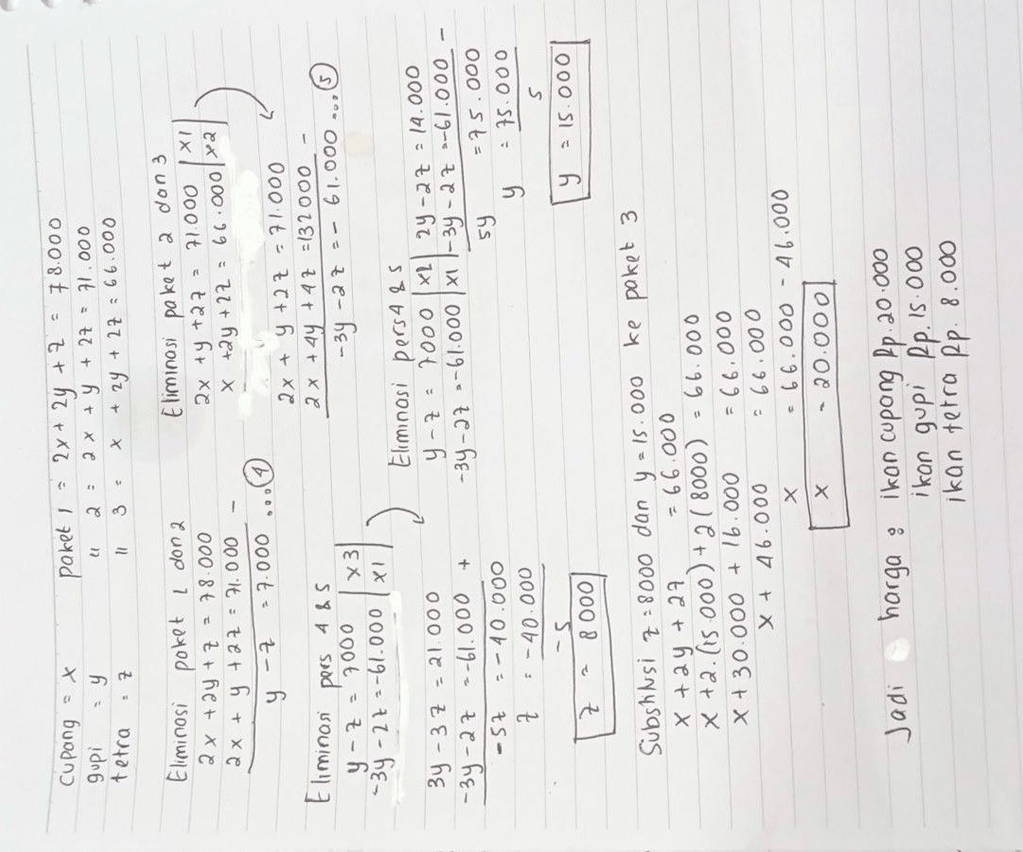 Cupang = x paket 1 = 2x + 2y + z = 78.000
gupi = y " 2 = 2x + y + 2z = 71.000
tetra = z " 3 = x + 2y + 2z = 66.000
Eliminasi paket 1 dan 2
2x + 2y + z = 78.000
2x + y + 2z = 71.000 -
y - z = 7.000 ...④
Eliminasi paket 2 dan 3
2x + y + 2z = 71.000 | x1 |
x + 2y + 2z = 66.000 | x2 |
2x + y + 2z = 71.000
2x + 4y + 4z = 132000 -
-3y - 2z = - 61.000 ...⑤
Eliminasi pers 4 & 5
y - z = 7000 | x3 |
-3y - 2z = -61.000 | x1 |
3y - 3z = 21.000
-3y - 2z = -61.000 +
-5z = -40.000
z = -40.000
-5
z = 8000
Eliminasi pers 4 & 5
y - z = 7000 | x2 | 2y - 2z = 14.000
-3y - 2z = -61.000 | x1 | -3y - 2z = -61.000 -
5y = 75.000
y = 75.000
5
y = 15.000
Substitusi z = 8000 dan y = 15.000 ke paket 3
x + 2y + 2z = 66.000
x + 2.(15.000) + 2(8000) = 66.000
x + 30.000 + 16.000 = 66.000
x + 46.000 = 66.000
x = 66.000 - 46.000
x = 20.000
Jadi harga : ikan cupang Rp.20.000
ikan gupi Rp. 15.000
ikan tetra Rp. 8.000